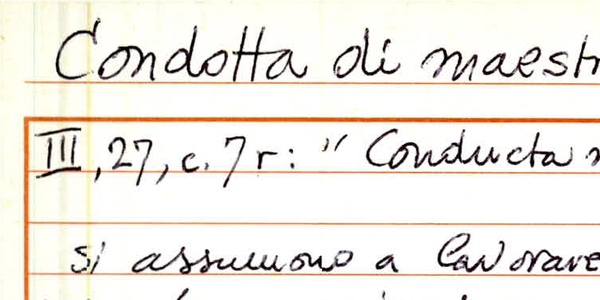 Condotta di maest
III, 27, c. 7 r: " Conducta
si assumono a lavorare